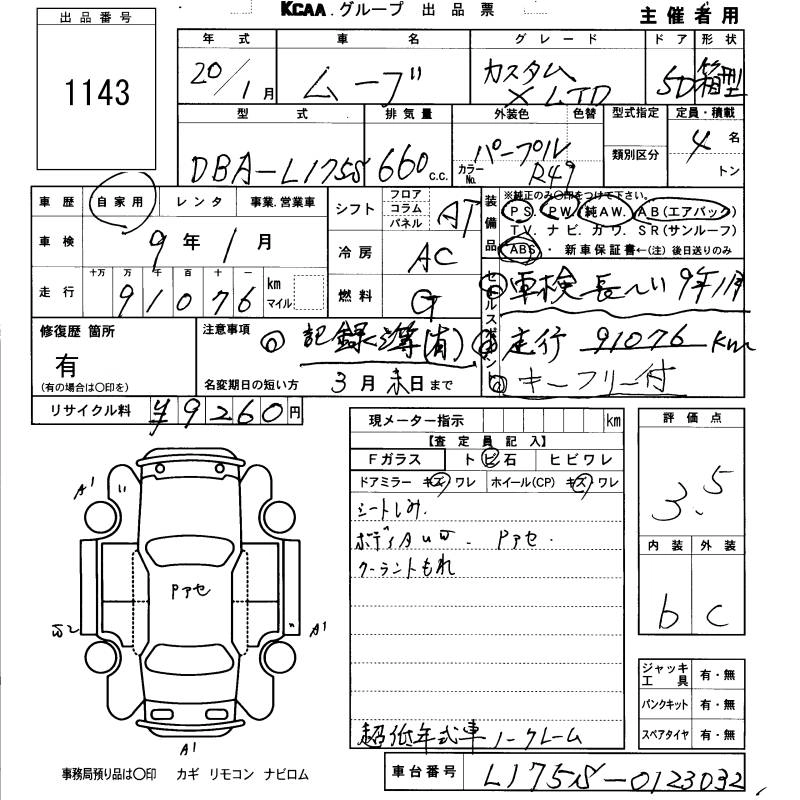 KCAA.グループ 出品票
主催者用
出品番号
1143
年式 車名 グレード ドア 形状
20/1月 ムーブ カスタム X LTD 5D 箱型
型式 排気量 外装色 色替 型式指定 定員・積載
DBA-L175S 660c.c. パープル カラーNo. R49 類別区分 4名 トン
車歴 自家用 レンタ 事業.営業車
車検 9年1月
走行 十万 万 千 百 十 一 km マイル
91076
シフト フロア コラム パネル AT
冷房 AC
燃料 G
装備品 ※純正のみ○印をつけて下さい。
PS. PW. 純AW. AB(エアバック)
TV. ナビ. カワ. SR(サンルーフ)
ABS・新車保証書←(注)後日送りのみ
セールスポイント
車検長〜い 9年1月
走行 91076km
キーフリー付
修復歴 箇所
有
(有の場合は○印を)
注意事項
記録簿(有)
名変期日の短い方 3月末日まで
リサイクル料 ¥9260円
現メーター指示 km
【査定員記入】
Fガラス トビ石 ヒビワレ
ドアミラー キズ ワレ ホイール(CP) キズ ワレ
シートしみ.
ボディAUW. Pアセ.
クーラントもれ
超低年式車ノークレーム
評価点
3.5
内装 外装
b c
ジャッキ工具 有・無
パンクキット 有・無
スペアタイヤ 有・無
A1 〃
Pアセ
W2 〃 A1
A1
事務局預り品は○印 カギ リモコン ナビロム
車台番号 L175S-0123032